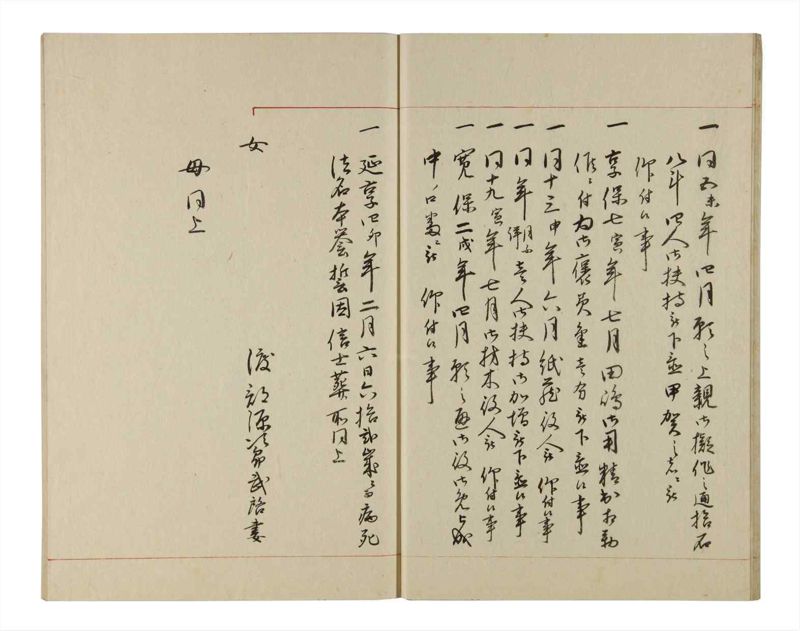 一同五未年四月願之上親御擬作之通拾石
八斗四人御扶持被下並甲賀之者ニ被
仰付候事
一享保七寅年七月田鴻御用精出相勤
候ニ付為御褒美金壱分被下置候事
一同十三申年六月紙蔵役人被 仰付候事
一同年 壱人御扶持御加増被下置候事
一同十九寅年七月御材木役人被 仰付候事
一寛保二戌年四月願之通御役御免
中ノ口番ニ被 仰付候事
一延享四卯年二月六日六拾 歳ニ而病死
法名本誉哲因信士葬所同上
女
渡部源次郎武啓妻
母同上